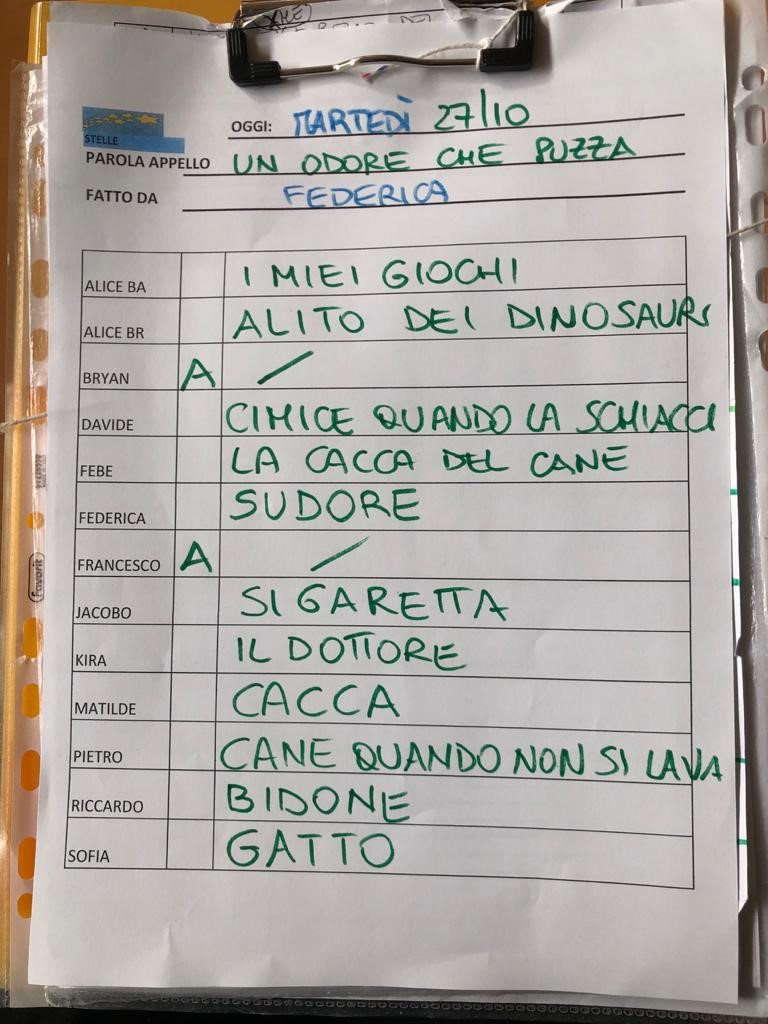 STELLE
OGGI: MARTEDÌ 27/10
PAROLA APPELLO UN ODORE CHE PUZZA
FATTO DA FEDERICA
ALICE BA I MIEI GIOCHI
ALICE BR ALITO DEI DINOSAURI
BRYAN A /
DAVIDE CIMICE QUANDO LA SCHIACCI
FEBE LA CACCA DEL CANE
FEDERICA SUDORE
FRANCESCO A /
JACOBO SIGARETTA
KIRA IL DOTTORE
MATILDE CACCA
PIETRO CANE QUANDO NON SI LAVA
RICCARDO BIDONE
SOFIA GATTO
Favorit